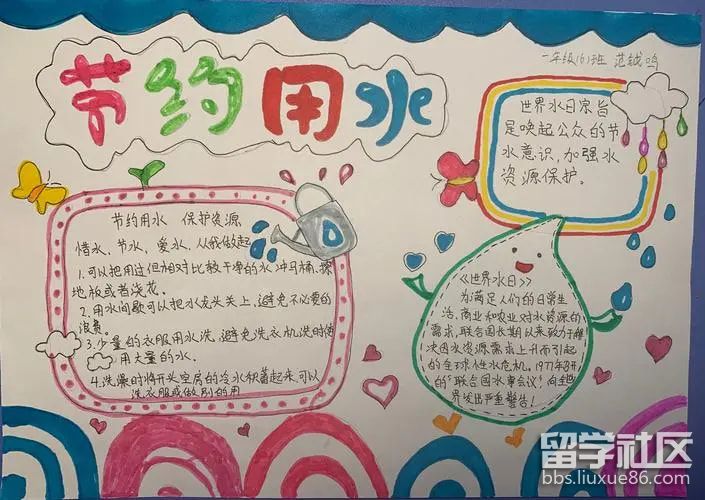 节约用水
一年级(6)班 范钺鸣
世界水日宗旨
是唤起公众的节
水意识,加强水
资源保护。
节约用水 保护资源
惜水、节水、爱水、从我做起
1.可以把用过但相对比较干净的水冲马桶、擦
地板或者浇花。
2.用水间歇可以把水龙头关上,避免不必要的
浪费。
3.少量的衣服用水洗,避免洗衣机洗时使
用大量的水。
4.洗澡时将开头空房的冷水积蓄起来,可以
洗衣服或做别的用
《世界水日》
为满足人们的日常生
活、商业和农业对水资源的
需求,联合国长期以来致力于解
决因水资源需求上升而引起
的全球性水危机。1977年3月
的"联合国水事会议"向全世
界发出严重警告!
留学社区
bbs.liuxue86.com